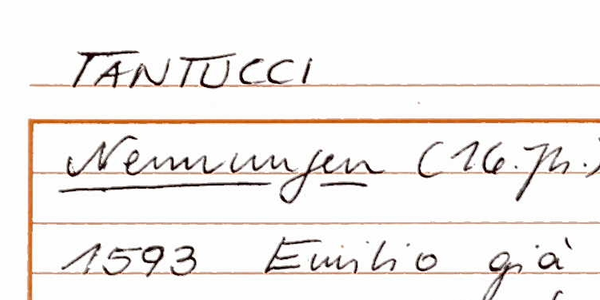 TANTUCCI
Nennungen (16. Jh.)
1593 Emilio già